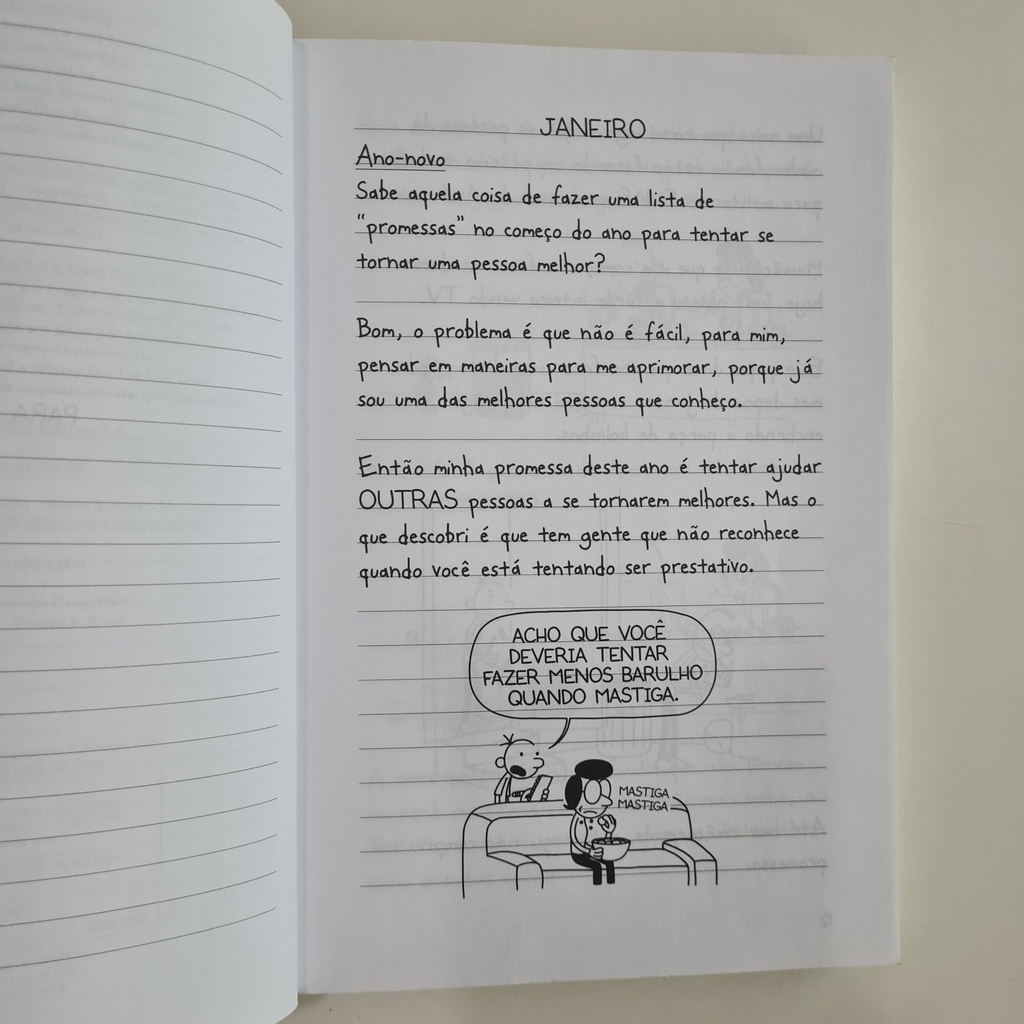 JANEIRO
Ano-novo
Sabe aquela coisa de fazer uma lista de
"promessas" no começo do ano para tentar se
tornar uma pessoa melhor?
Bom, o problema é que não é fácil, para mim,
pensar em maneiras para me aprimorar, porque já
sou uma das melhores pessoas que conheço.
Então minha promessa deste ano é tentar ajudar
OUTRAS pessoas a se tornarem melhores. Mas o
que descobri é que tem gente que não reconhece
quando você está tentando ser prestativo.
ACHO QUE VOCÊ
DEVERIA TENTAR
FAZER MENOS BARULHO
QUANDO MASTIGA.
MASTIGA
MASTIGA